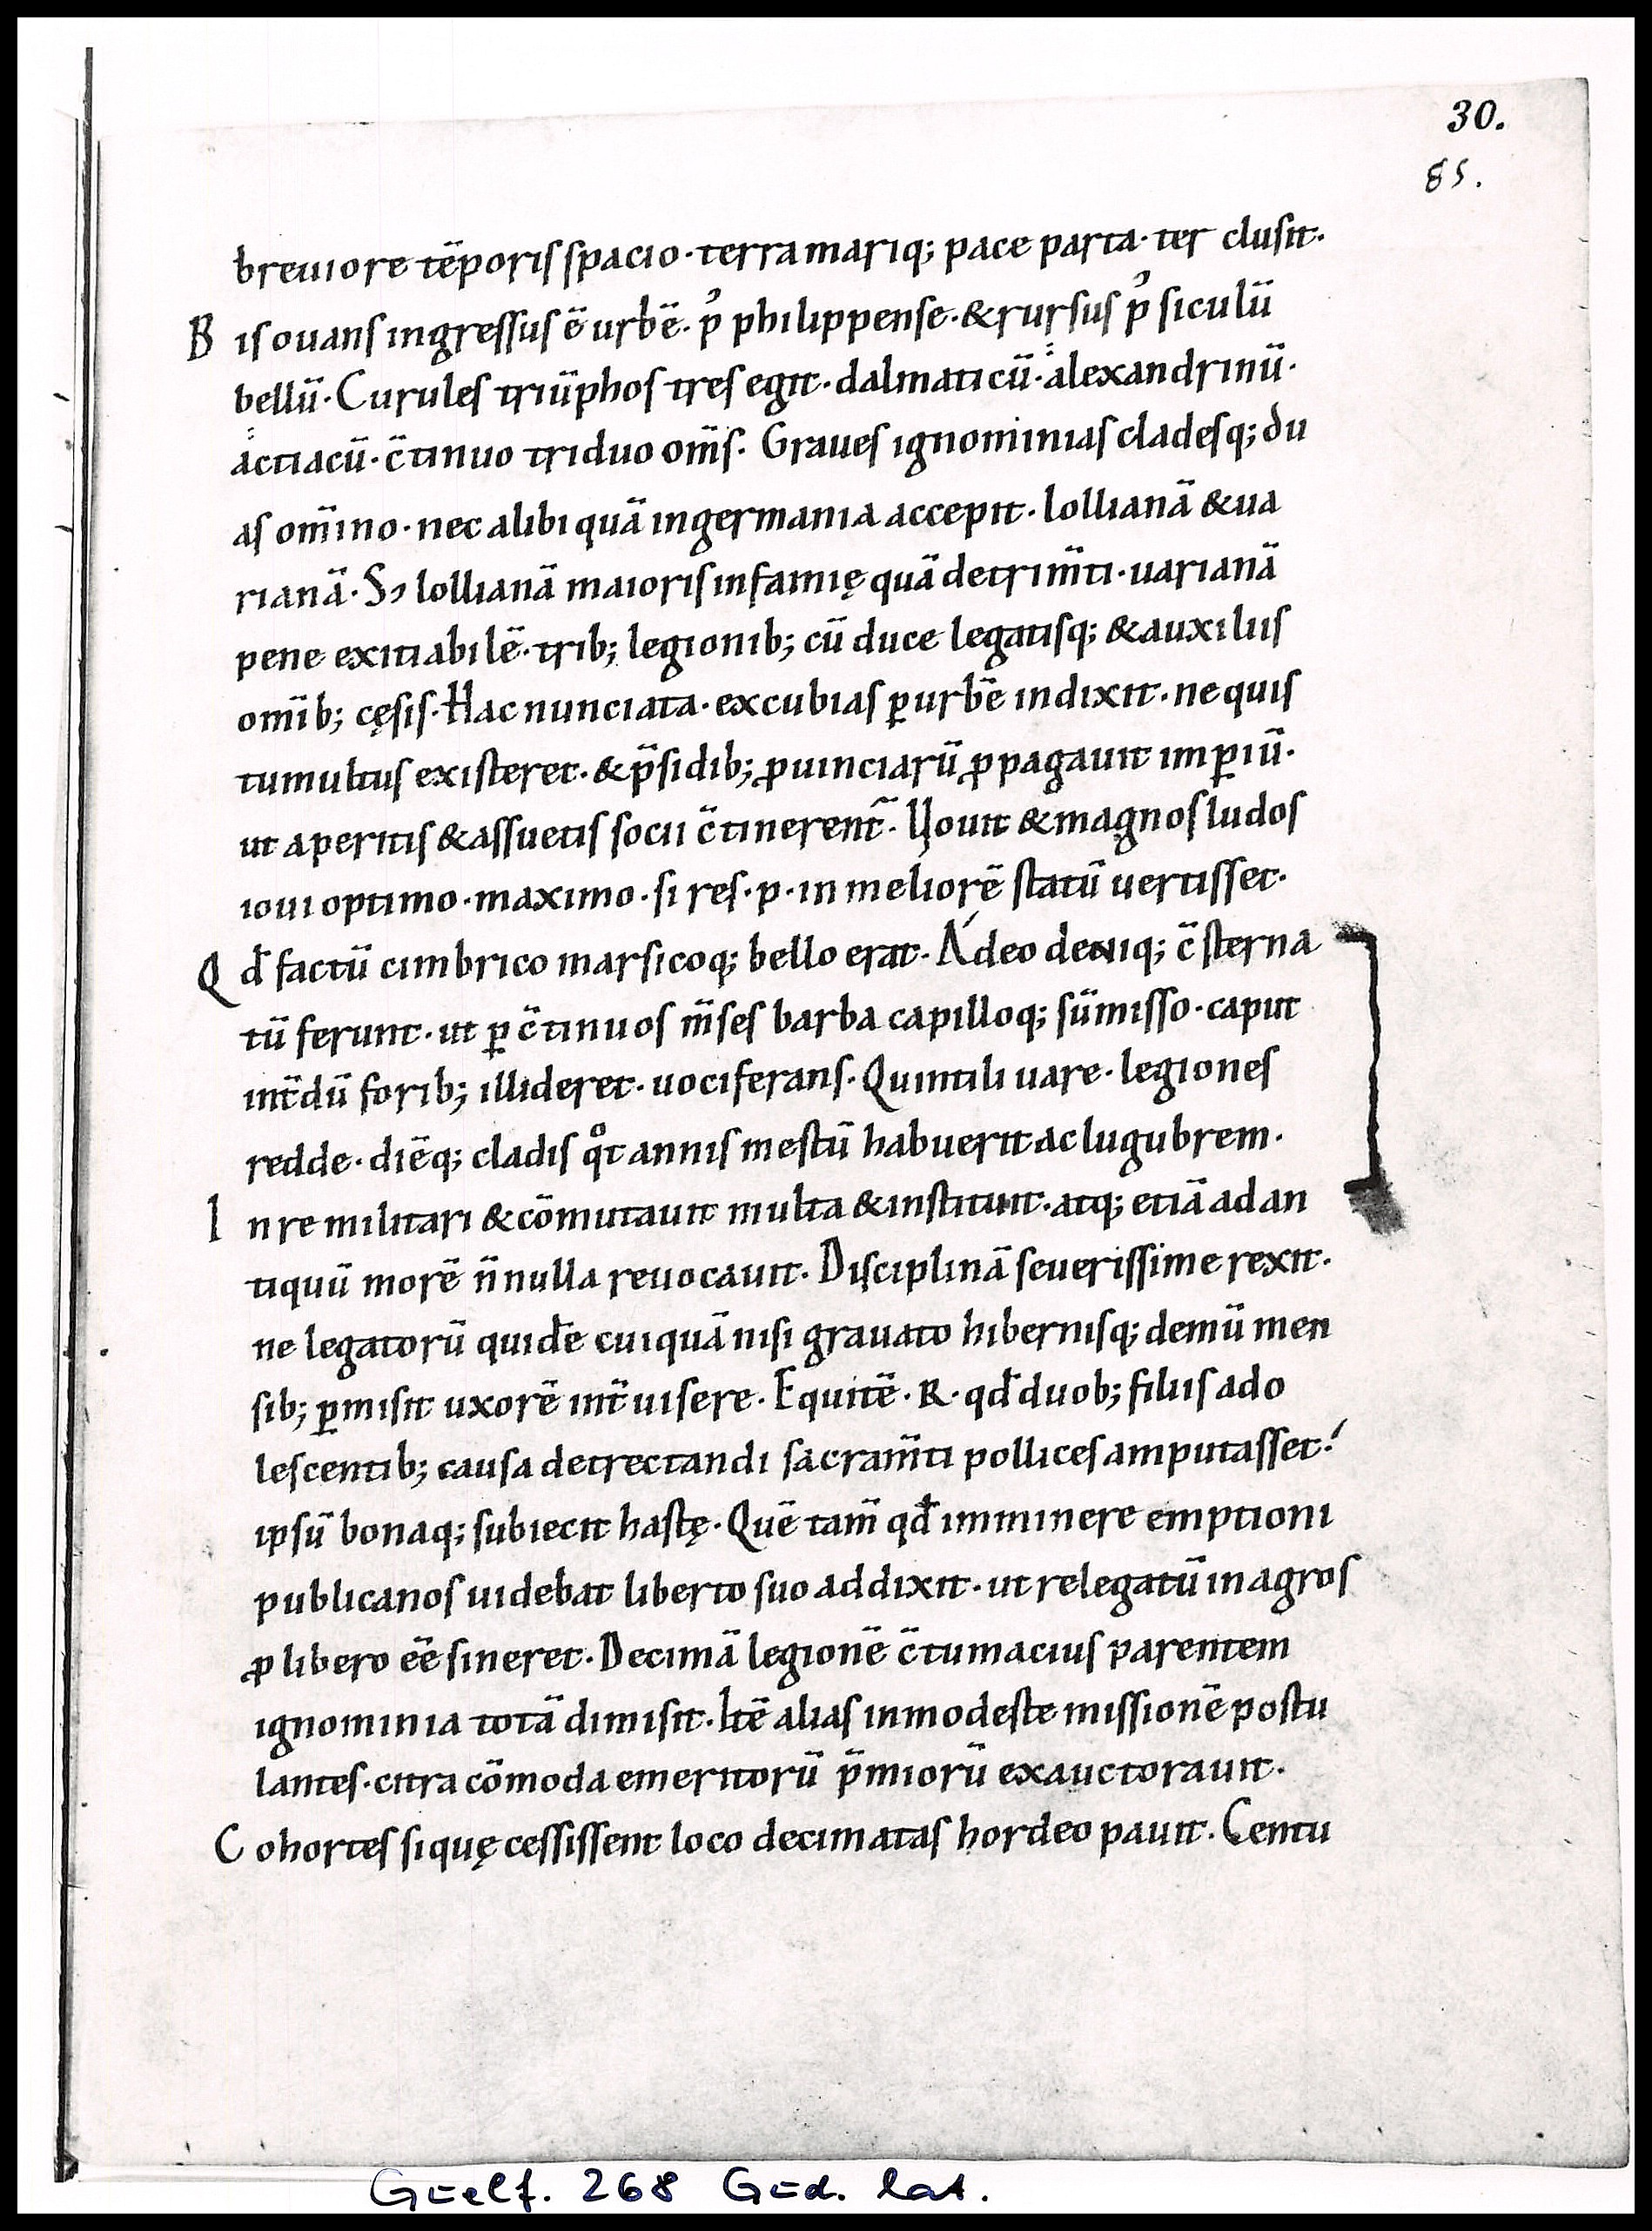 30.
85.
breuiore tēporis spacio · terra mariq; pace parta · ter clusit.
B is ouans ingressus ē urbē · p᾽ philippense · & rursus p᾽ siculū
bellū · Curules triūphos tres egit · dalmaticū · alexandrinū ·
actiacū · c̄tinuo triduo om̄s · Graues ignominias cladesq; du
as om̄ino · nec alibi quā in germania accepit · lollianā & ua
rianā · Sꝫ lollianā maioris infamię quā detrim̄ti · uarianā
pene exitiabilē · trib; legionib; cū duce legatisq; & auxiliis
om̄ib; cęsis · Hac nunciata · excubias ꝑ urbē indixit · ne quis
tumultus existeret · & p̄sidib; ꝓuinciarū ꝓpagauit imꝑiū ·
ut a peritis & assuetis socii c̄tinerent᷑ · Uouit & magnos ludos
ioui optimo · maximo · si res · p · in meliorē statū uertisset ·
Q d̄ factū cimbrico marsicoq; bello erat · Adeo deniq; c̄sterna
tū ferunt · ut ꝑ c̄tinuos m̄ses barba capilloq; sūmisso · caput
int̄dū forib; illideret · uociferans · Quintili uare · legiones
redde · diēq; cladis qͦt annis mestū habuerit ac lugubrem ·
I n re militari & cōmutauit multa & instituit · atq; etiā ad an
tiquū morē n̄nulla reuocauit · Disciplinā seuerissime rexit ·
ne legatorū quidē cuiquā nisi grauato hibernisq; demū men
sib; ꝑmisit uxorē int̄uisere · Equitē · R · qd̄ duob; filiis ado
lescentib; causa detrectandi sacram̄ti pollices amputasset ·
ipsū bonaq; subiecit hastę · Quē tam̄ qd̄ imminere emptioni
publicanos uidebat liberto suo addixit · ut relegatū in agros
ꝓ libero ēē sineret · Decimā legionē c̄tumacius parentem
ignominia totā dimisit · Itē alias inmodeste missionē postu
lantes · citra cōmoda emeritorū p̄miorū exauctorauit ·
C ohortes si quę cessissent loco decimatas hordeo pauit · Centu
Guelf. 268 Gud. lat.